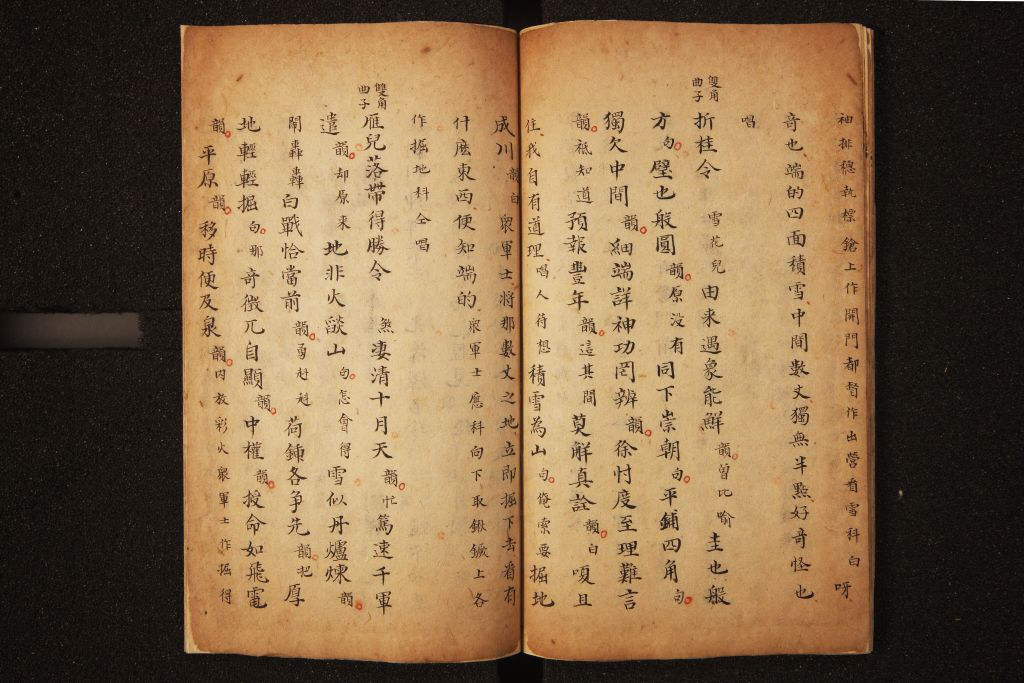 袖排穩執標鎗上作開門都督作出營看雪科白呀
奇也端的四面積雪中間數丈獨無半點好奇怪也
唱
雙角
曲子
折桂令 雪花兒由来遇象能鮮韻曾比喻圭也般
方句璧也般圓韻原没有同下崇朝句平鋪四角句
獨欠中間韻細端詳神功罔辨韻徐忖度至理難言
韻祗知道預報豐年韻這其間莫解真詮韻白嗄且
住我自有道理唱人待想積雪為山句俺索要掘地
成川韻白衆軍士將那數丈之地立即掘下去看有
什麽東西便知端的衆軍士應科向下取鍬鐝上各
作掘地科仝唱
雙角
曲子
雁兒落帶得勝令 煞淒清十月天韻忙篤速千軍
遣韻却原来地非火燄山句怎會得雪似丹爐煉韻
鬧轟轟白戰恰當前韻勇赳赳荷鍾各争先韻把厚
地輕輕掘句那奇徵兀自顯韻中權韻授命如飛電
韻平原韻移時便及泉韻内放彩火衆軍士作掘得